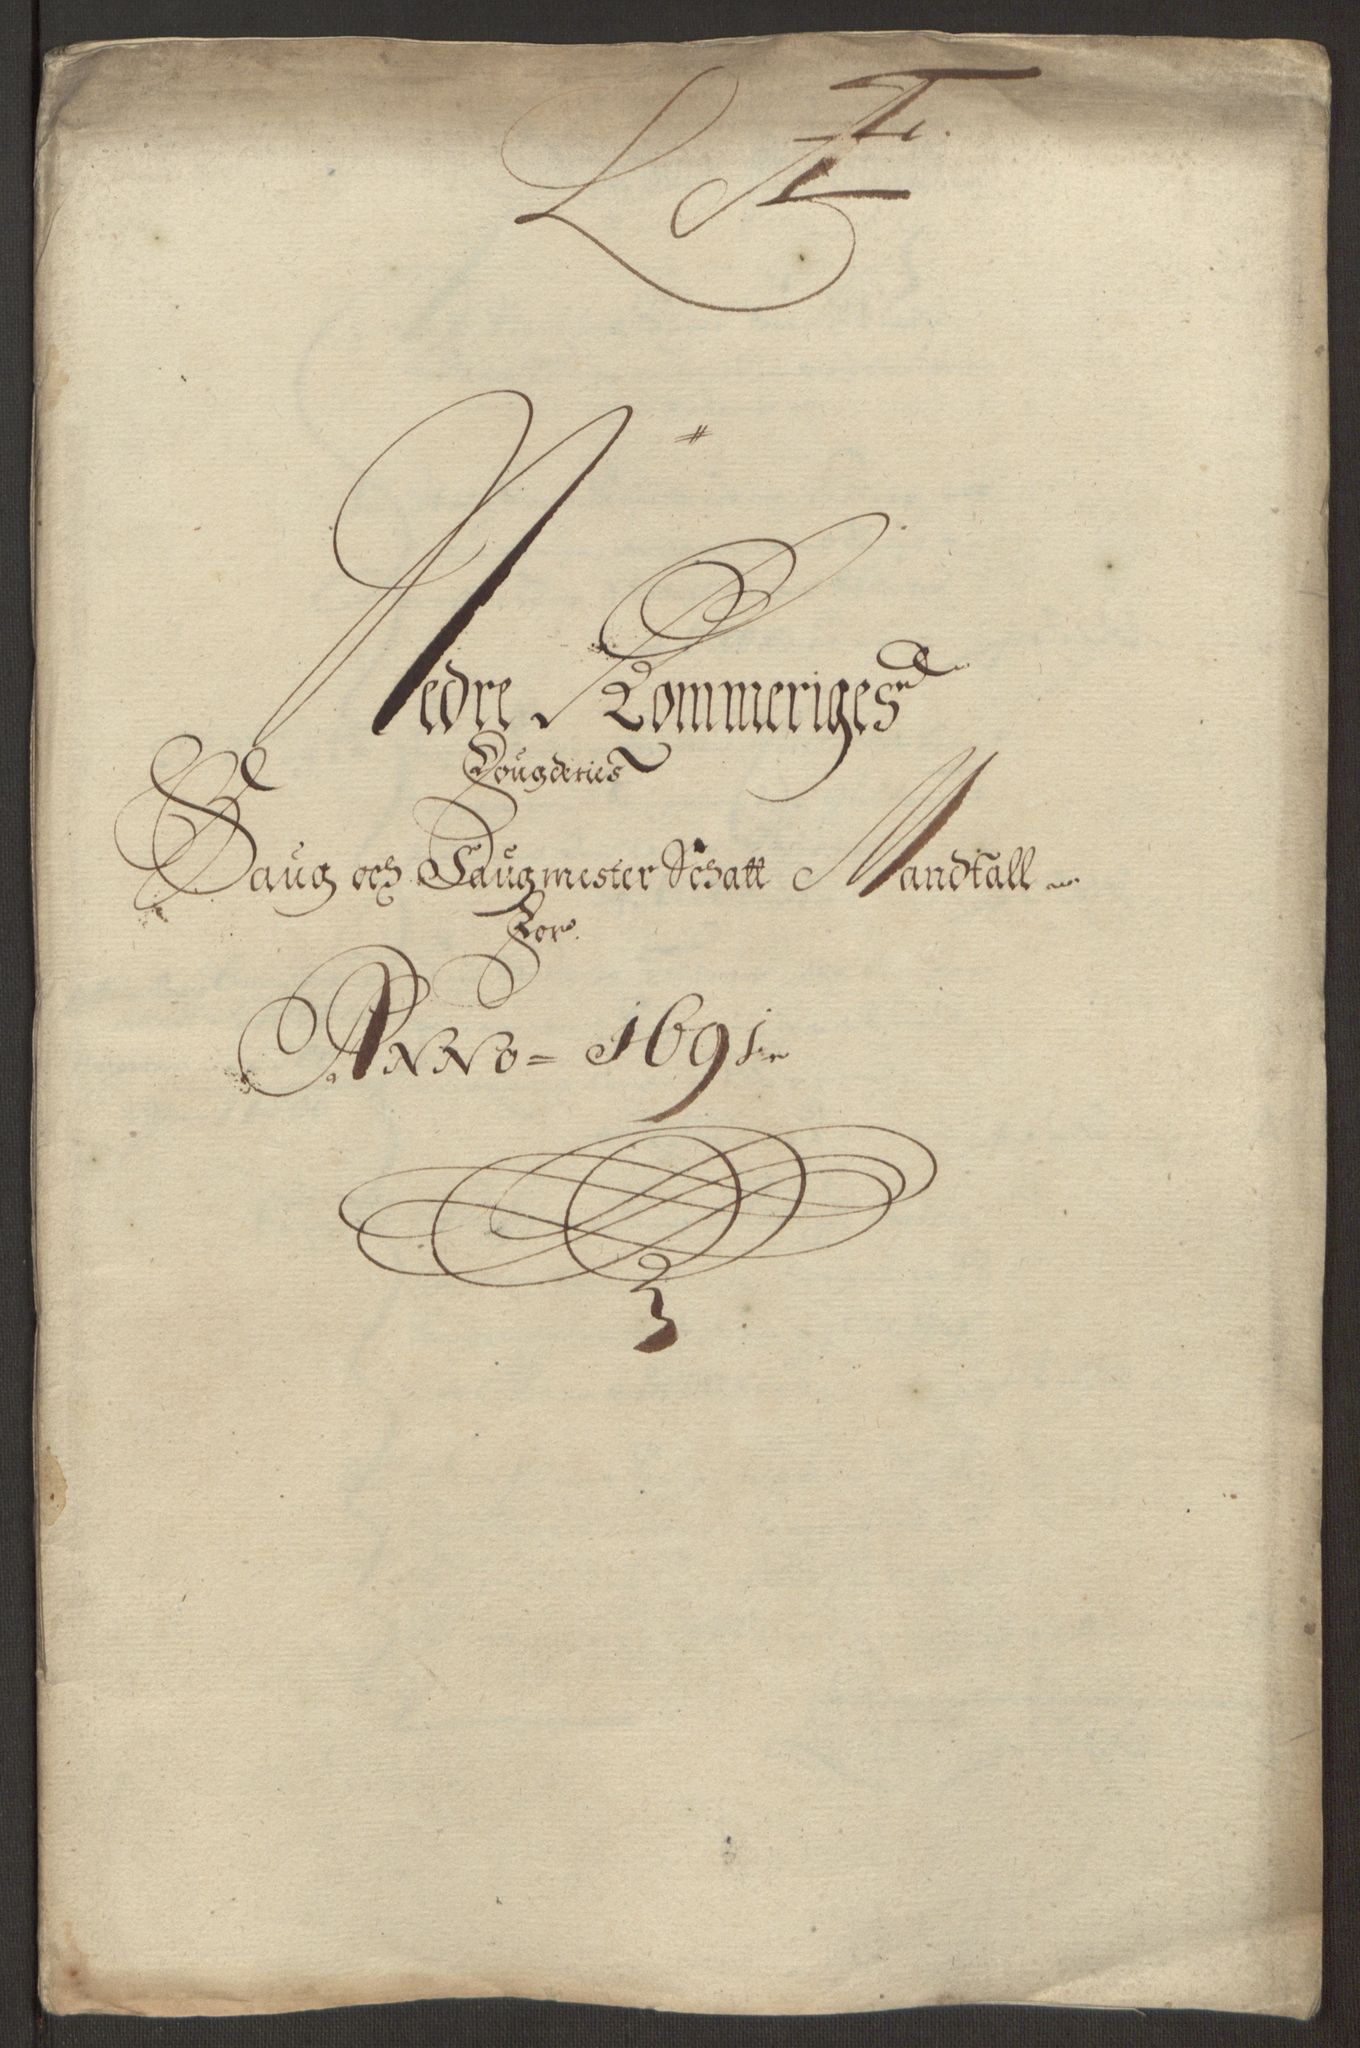 Nedre Rommeriges
Fougderies
Saug och Saugmester Schatt Mandtall
For
Anno = 1691